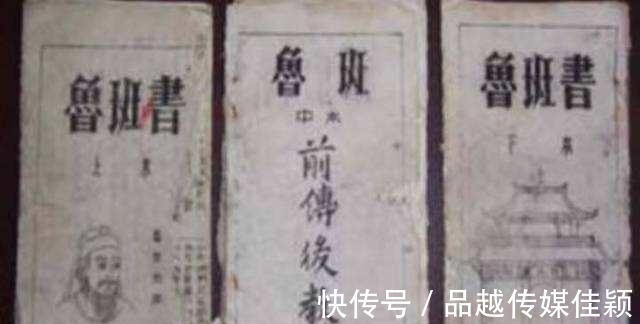 魯班書
上本
魯班
中本
前傳後教
魯班書
下本
快传号 / 品越传媒佳颖